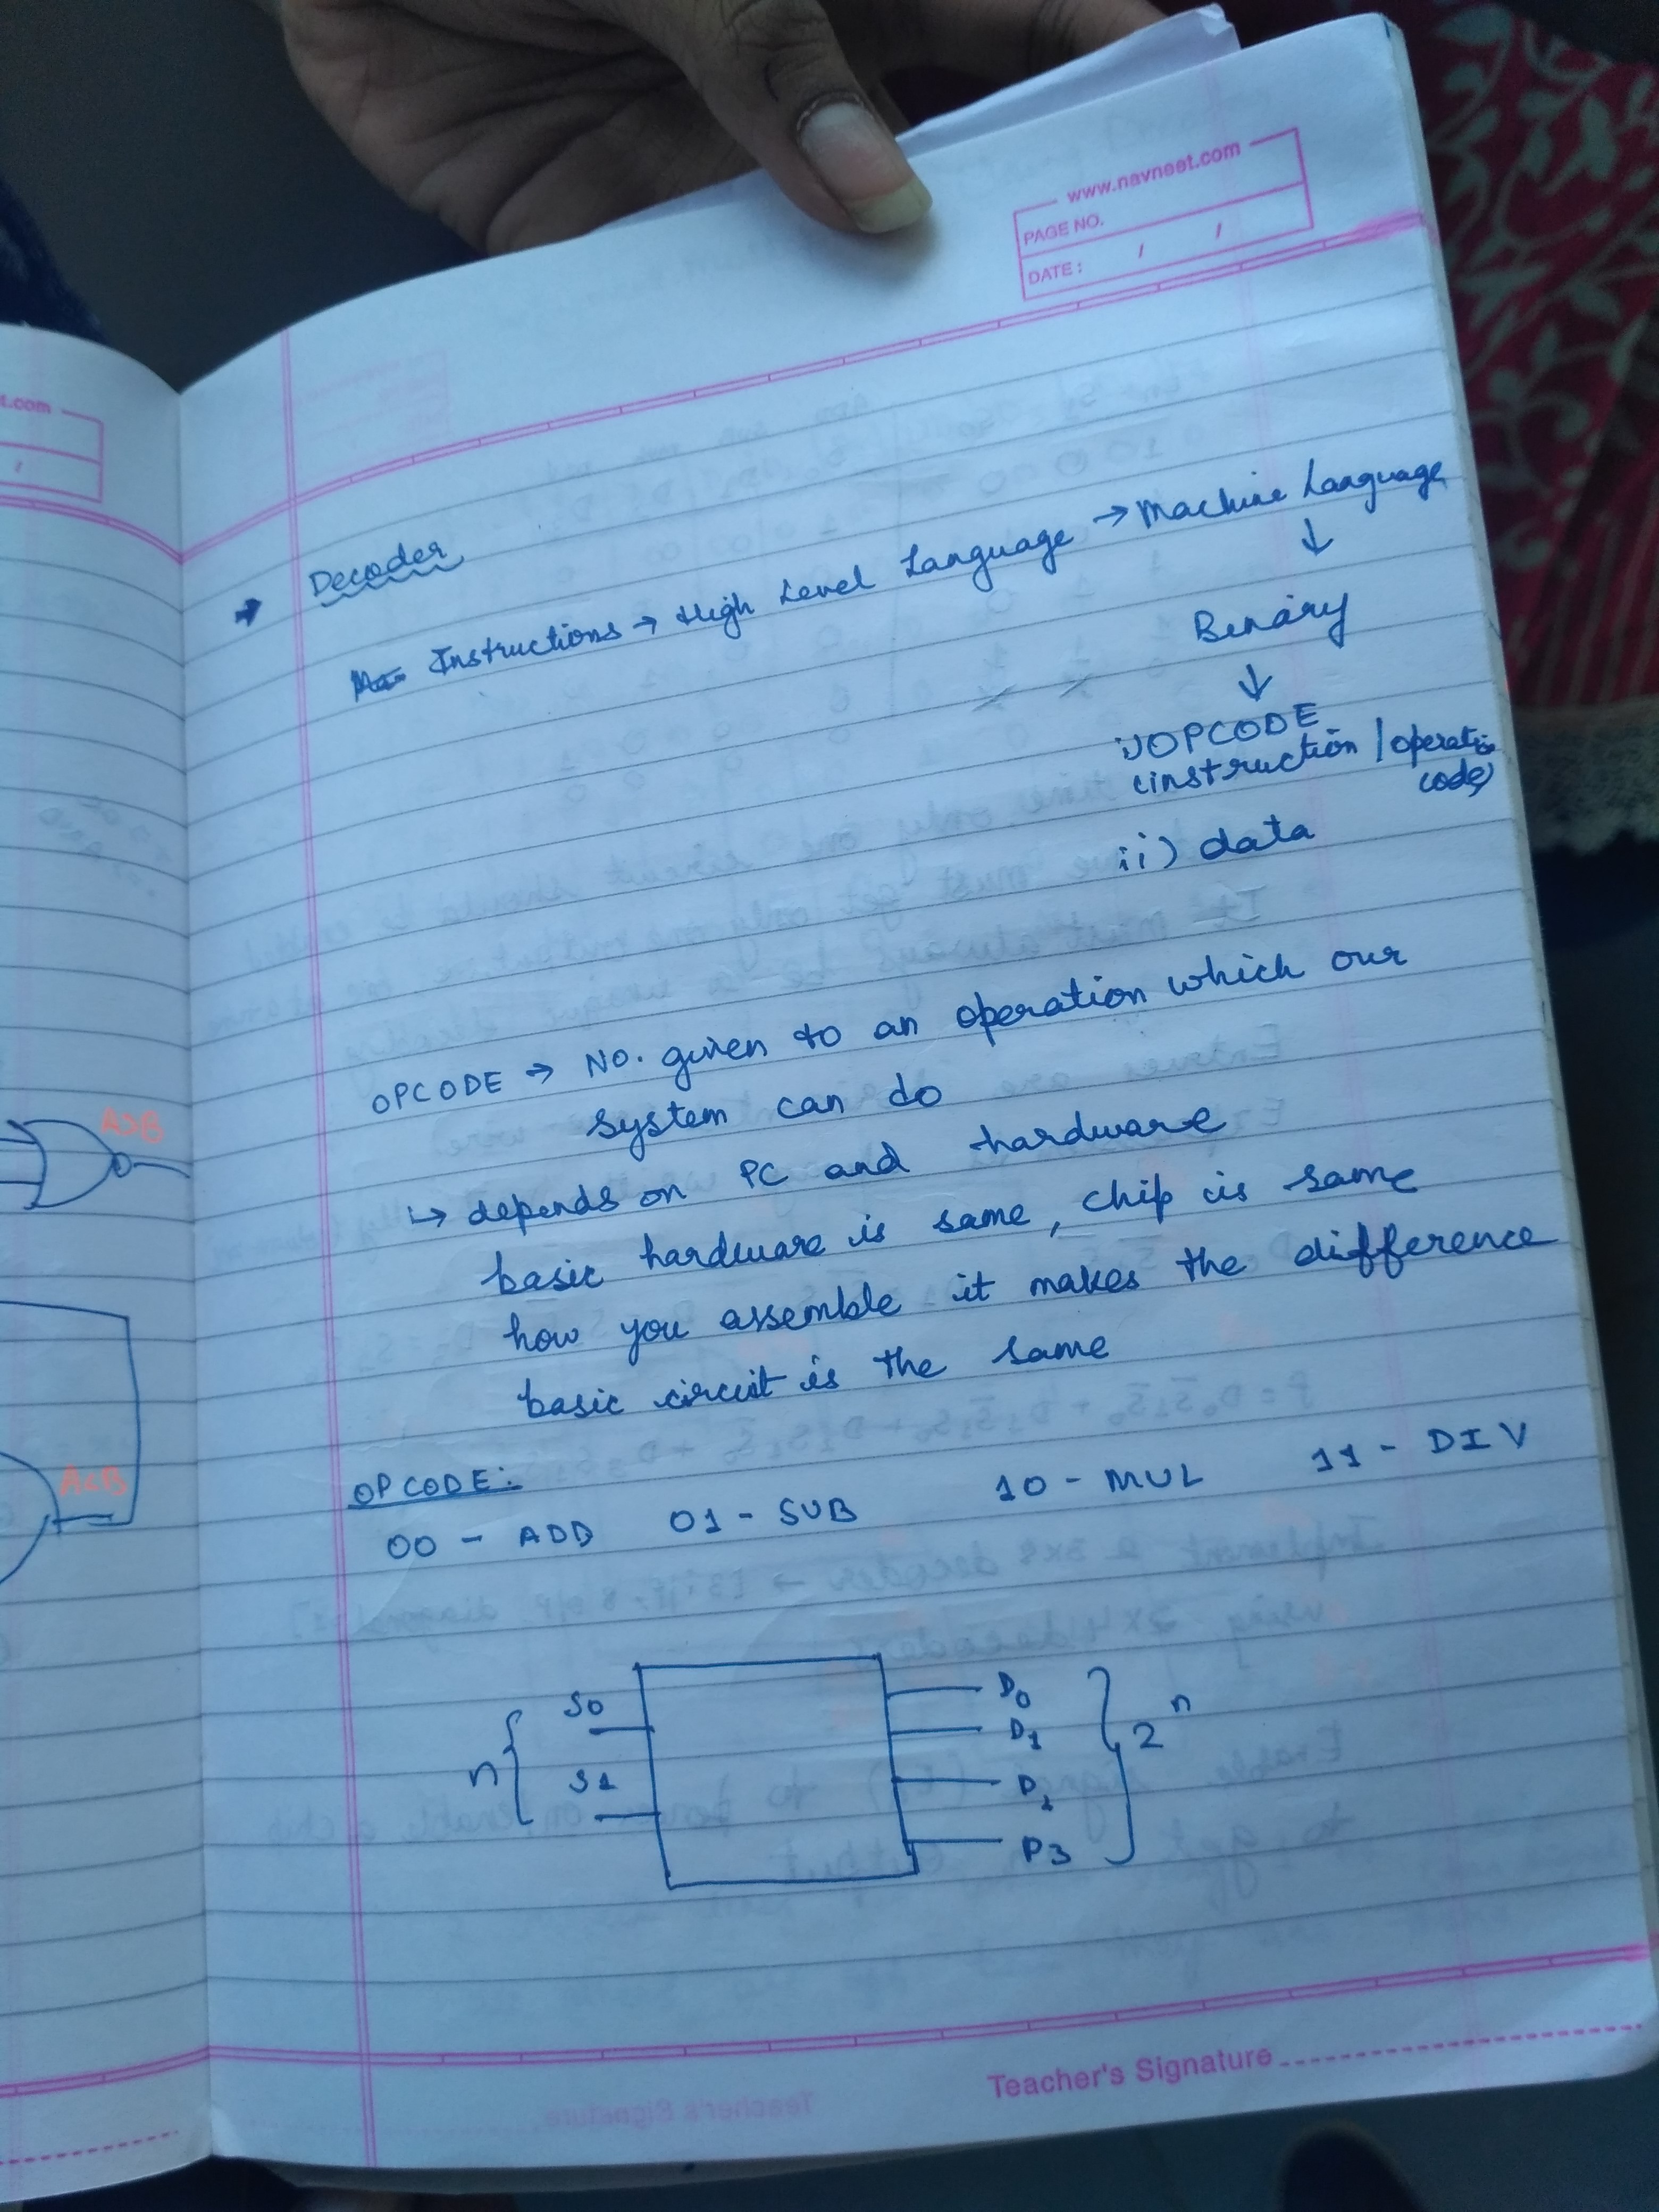 t.com
www.navneet.com
PAGE NO.
DATE: / /
Decoder
Instructions → High Level Language → Machine Language
↓
Binary
↓
i) OPCODE
(instruction / operation
code)
ii) data
OPCODE → No. given to an operation which our
system can do
↳ depends on PC and hardware
basic hardware is same, chip is same
how you assemble it makes the difference
basic circuit is the same
A>B
A<B
OPCODE:
00 - ADD 01 - SUB 10 - MUL 11 - DIV
S0 D0
n D1 2^n
S1 D2
D3
Teacher's Signature